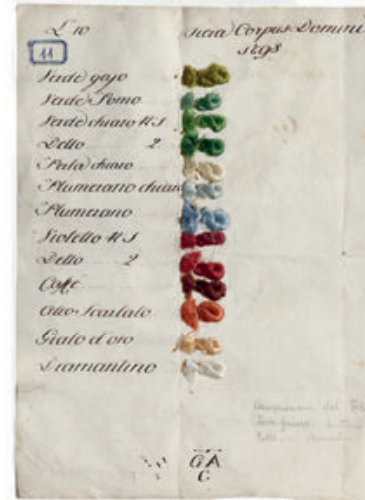 L 10
Fiera Corpus Domini
1698
44
Verde gajo
Verde Pomo
Verde chiaro N 1
Detto 2
Perla chiaro
Plumerano chiaro
Plumerano
Violetto N 1
Detto 2
Caffé
Oleo Scarlato
Gialo d'oro
Diamantino
GA
C